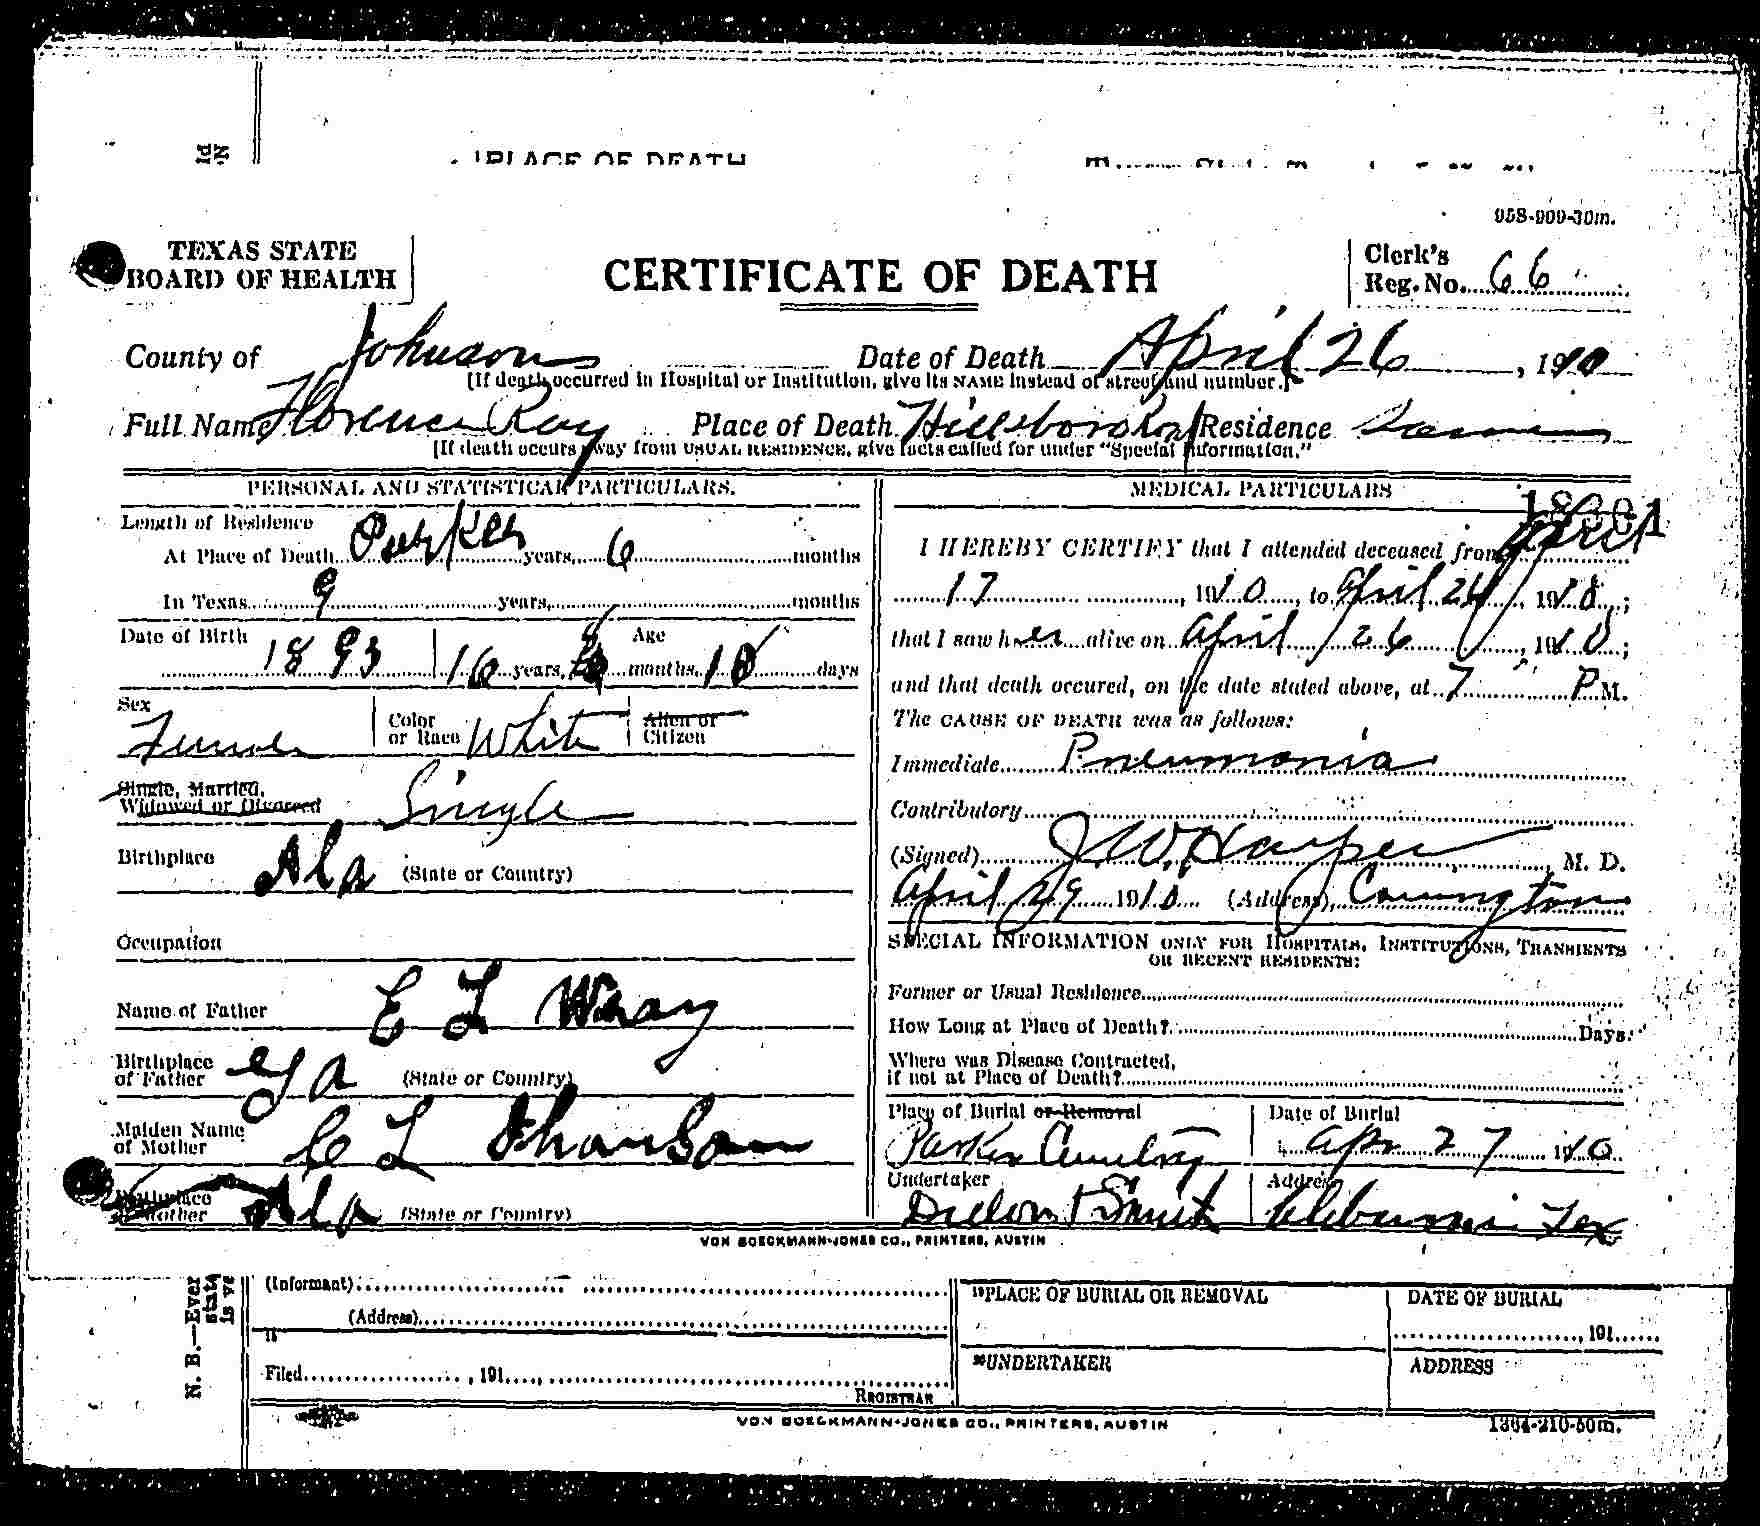 PLACE OF DEATH
958-909-30m.
TEXAS STATE
BOARD OF HEALTH
CERTIFICATE OF DEATH
Clerk's
Reg. No. 66
County of Johnson Date of Death April 26, 1910
[If death occurred in Hospital or Institution, give its NAME instead of street and number.]
Full Name Florence Ray Place of Death Hillsboro Road Residence Same
[If death occurs away from USUAL RESIDENCE, give facts called for under "Special Information."
PERSONAL AND STATISTICAL PARTICULARS.
Length of Residence
At Place of Death Parker years, 6 months
In Texas 9 years, months
Date of Birth 1893 Age 16 years, months, 10 days
Sex Female Color or Race White Alien or Citizen
Single, Married, Widowed or Divorced Single
Birthplace Ala (State or Country)
Occupation
Name of Father E L Wray
Birthplace of Father Ga (State or Country)
Maiden Name of Mother C L
Birthplace of Mother Ala (State or Country)
MEDICAL PARTICULARS
I HEREBY CERTIFY that I attended deceased from April
17, 1910, to April 26, 1910;
that I saw her alive on April 26, 1910;
and that death occured, on the date stated above, at 7 P. M.
The CAUSE OF DEATH was as follows:
Immediate Pneumonia
Contributory
(Signed) J. W. Harper, M. D.
April 29 1910 (Address) Covington
SPECIAL INFORMATION ONLY FOR HOSPITALS, INSTITUTIONS, TRANSIENTS
OR RECENT RESIDENTS:
Former or Usual Residence
How Long at Place of Death? Days.
Where was Disease Contracted,
if not at Place of Death?
Place of Burial or Removal
Parker Cemetry
Date of Burial
Apr 27 1910
Undertaker
Dillon & Smith
Address
Cleburne Tex
VON BOECKMANN-JONES CO., PRINTERS, AUSTIN
N. B.—Ever
state
is ve
(Informant)
(Address)
Filed, 191
REGISTRAR
19 PLACE OF BURIAL OR REMOVAL
DATE OF BURIAL
, 191
20 UNDERTAKER
ADDRESS
VON BOECKMANN-JONES CO., PRINTERS, AUSTIN
1364-210-50m.